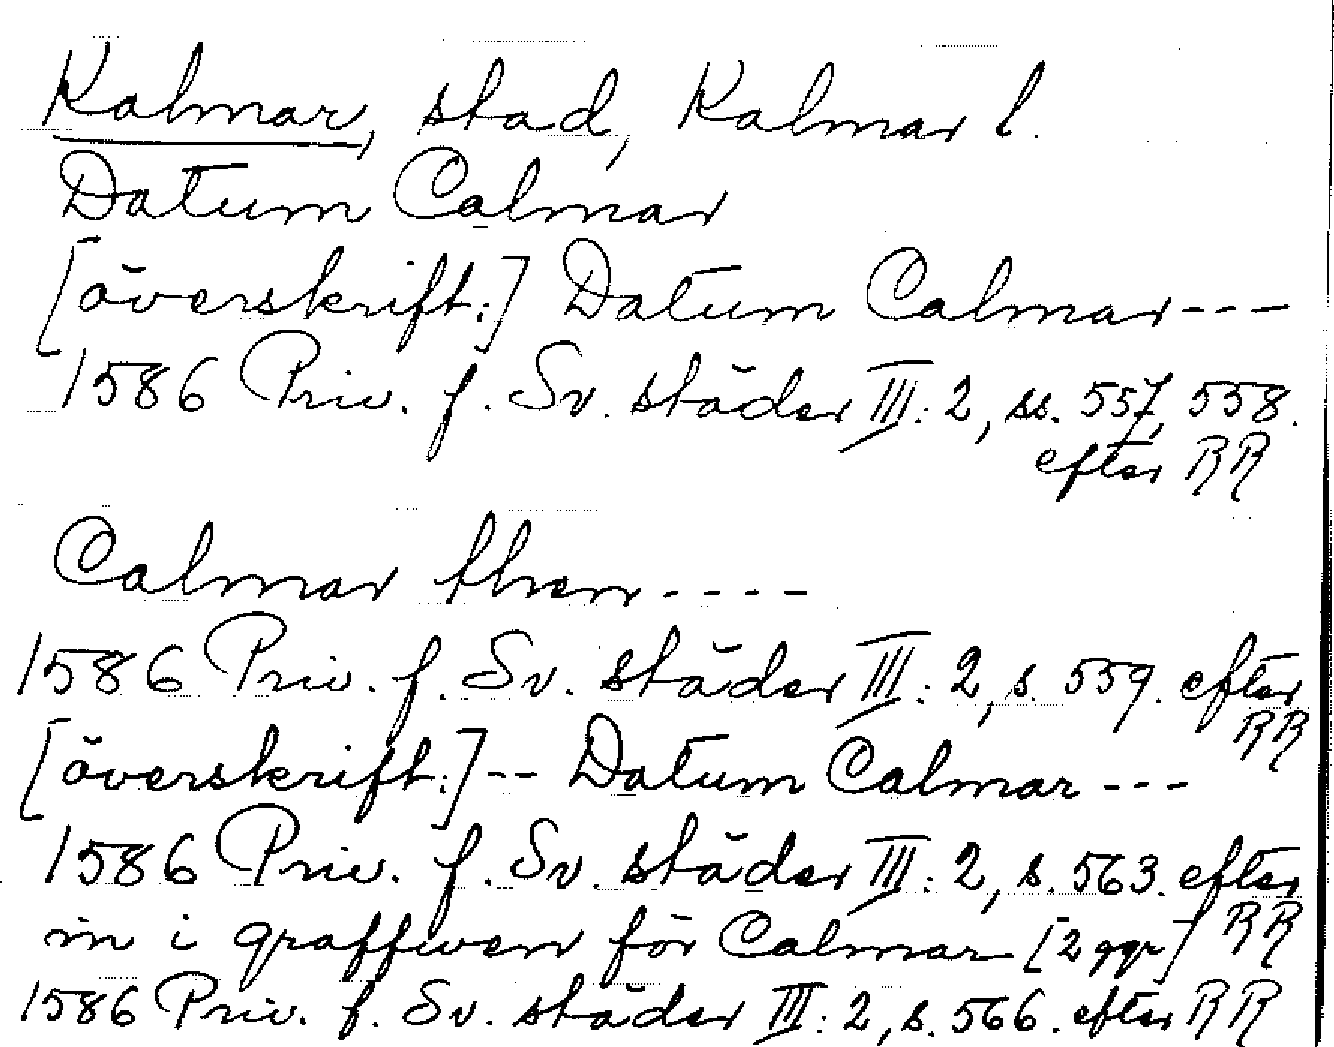 Kalmar, stad, Kalmar l.
Datum Calmar
[överskrift:] Datum Calmar---
1586 Priv. f. Sv. städer III: 2, ss. 557, 558.
efter RR
Calmar then----
1586 Priv. f. Sv. städer III: 2, s. 559. efter
RR
[överskrift:]-- Datum Calmar---
1586 Priv. f. Sv. städer III: 2, s. 563. efter
RR
in i graffwen för Calmar [2 ggr]
1586 Priv. f. Sv. städer III: 2, s. 566. efter RR